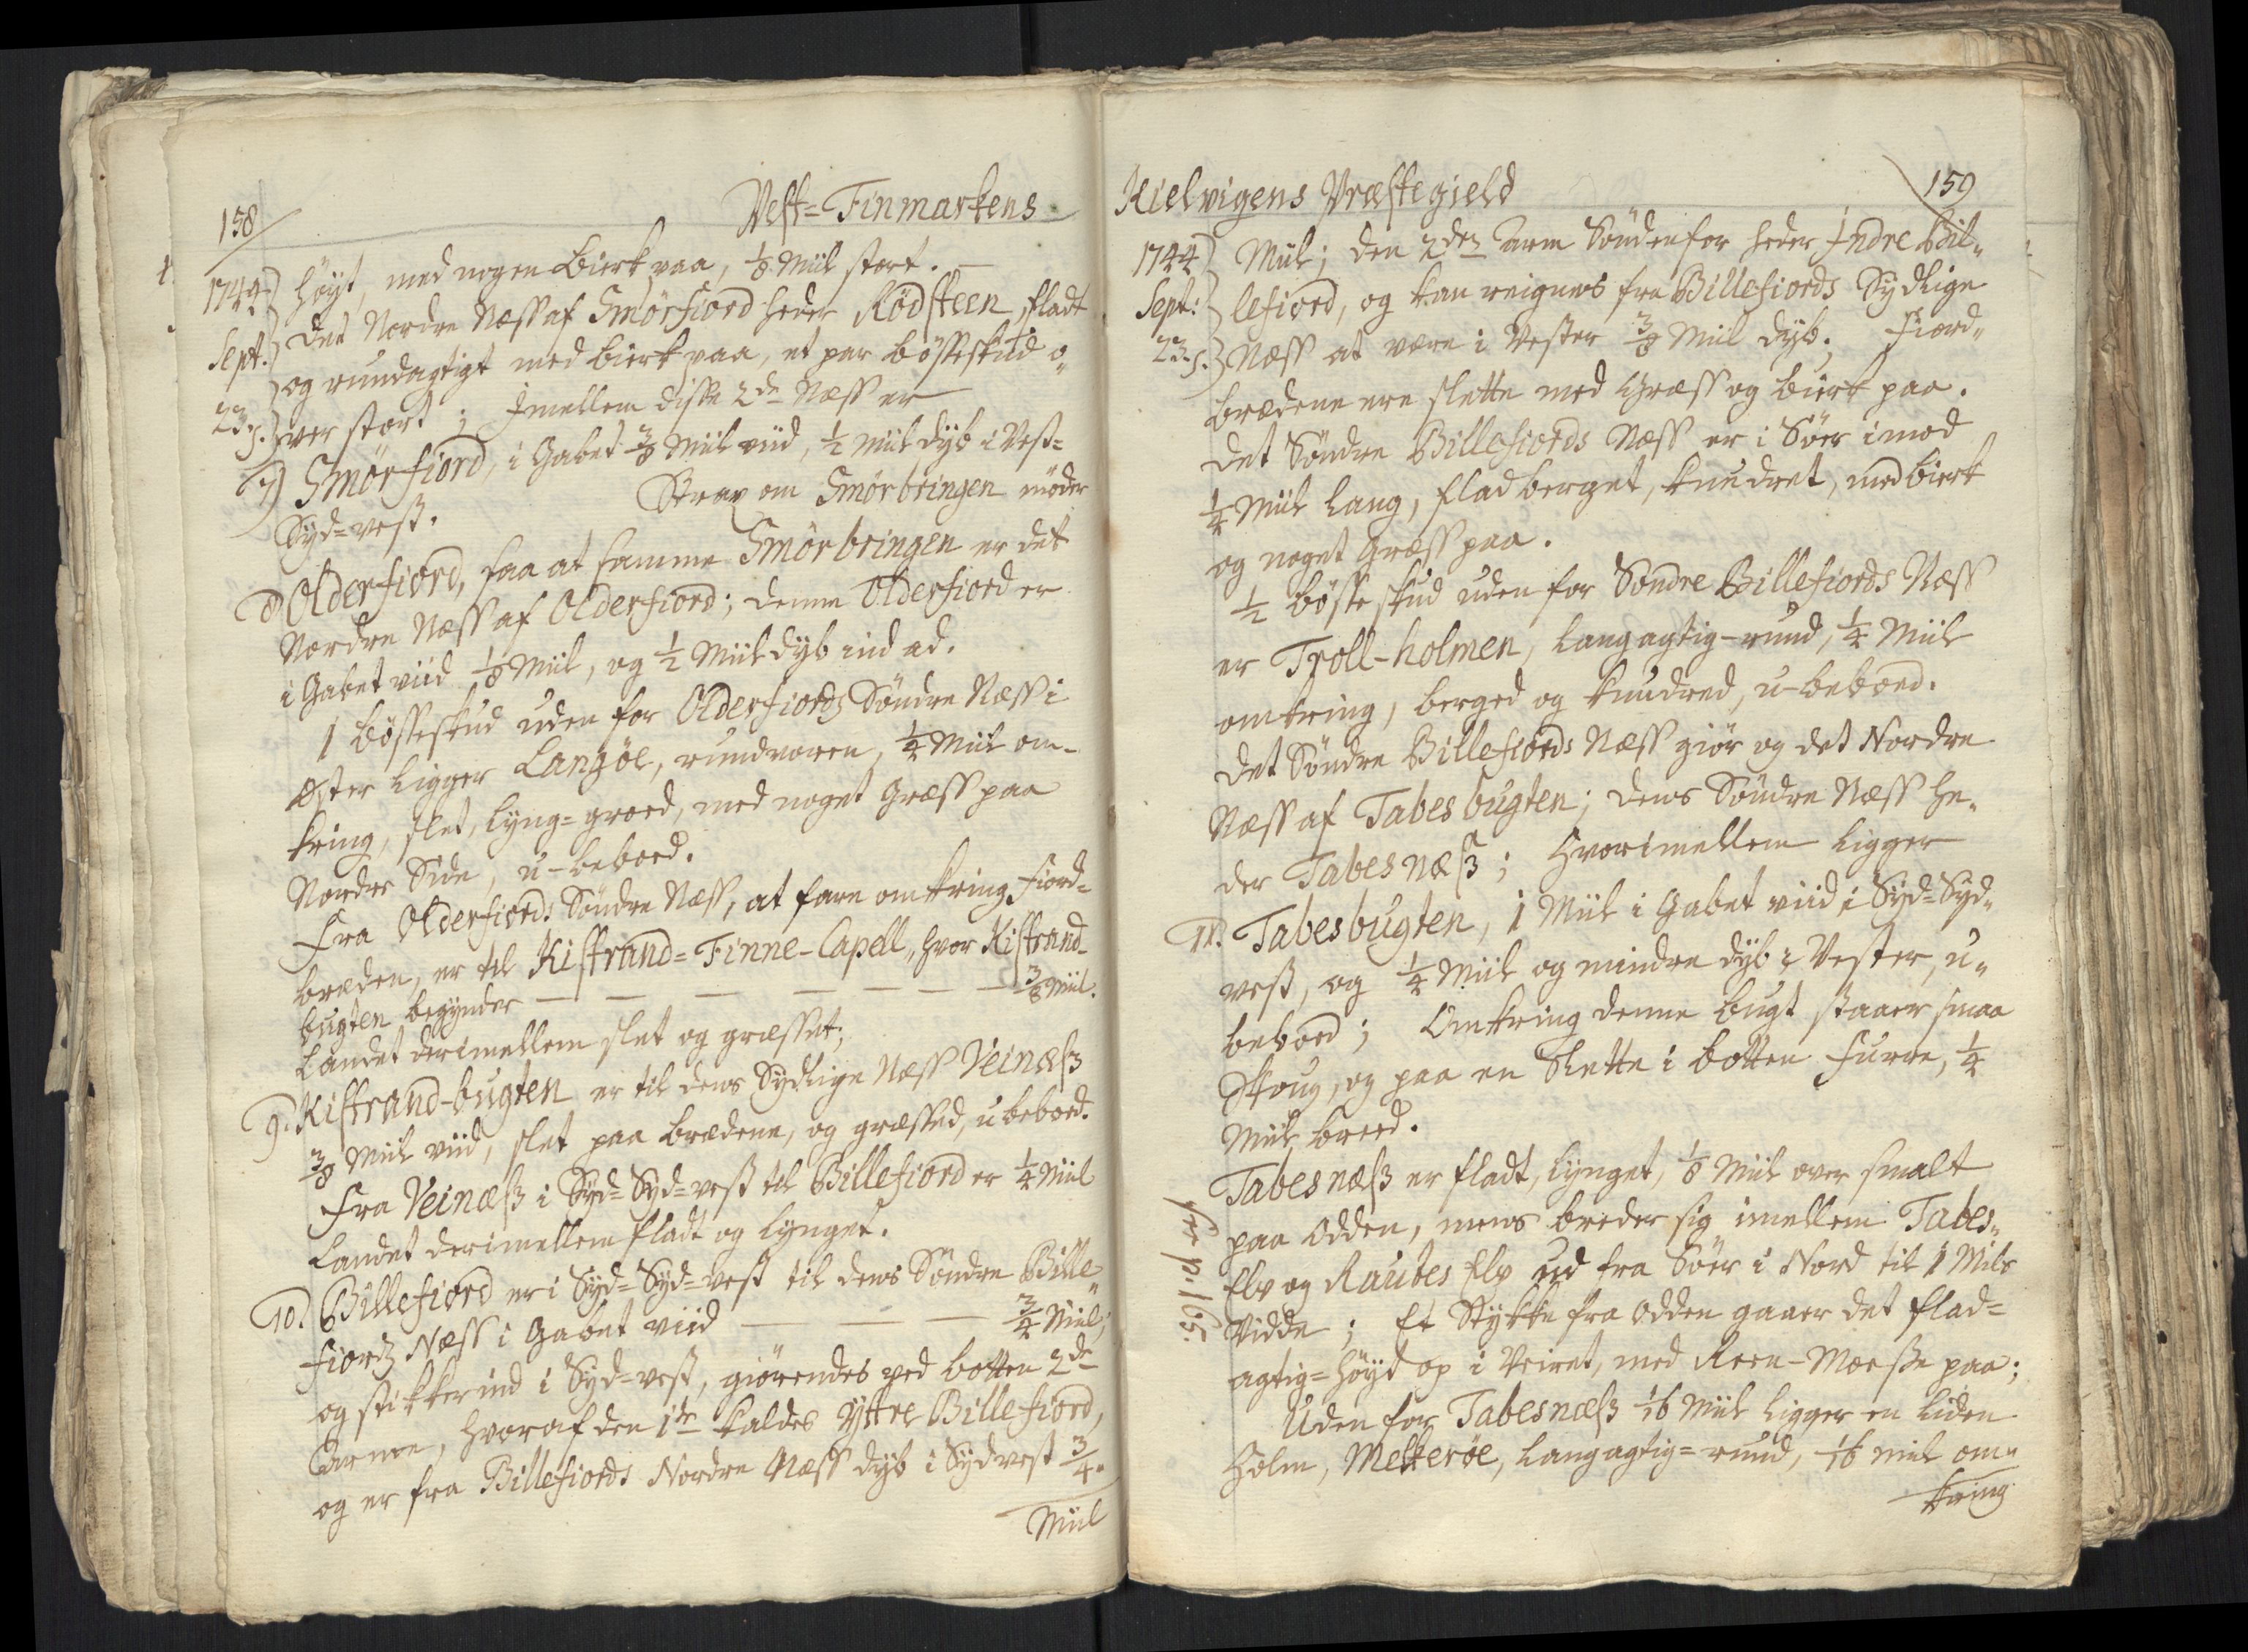 158
Vest=Finmarkens
1744
Sept:
23.s.
höyt, med nogen Bierk paa, 1/8 Miil stort.
Det Nordre Næss af Smörfiord heder Rödsteen, fladt
og rundagtigt med bierk paa, et par bösseskud o„
ver stort; Imellem disse 2de Næss er
7) Smörfiord, i Gabet 3/8 Miil viid, 1/2 Miil dyb i Vest=
Syd=vest. Strax om Smörbringen möder
8 Olderfiord, saa at samme Smörbringen er det
Nordre Næss af Olderfiord; denne Olderfiord er
i Gabet viid 1/8 Miil, og 1/2 Miil dyb ind ad.
1 bösseskud uden for Olderfiords Söndre Næss i
Öster ligger Langöe, rundvoren, 1/4 Miil om-
kring, slet, lyng=groed, med noget Græss paa
Nordre Side, u-beboed.
Fra Olderfiords Söndre Næss, at fare omkring Fiord=
breden, er til Kistrand=Finne-Capell, hvor Kistrand-
bugten begynder — — — — — — — 3/8 Miil.
Landet derimellem slet og græsset;
9. Kistrand-bugten er til dens Sydlige Næss Veinæss
3/8 Miil viid, slet paa brædene, og græssed, ubeboed.
Fra Veinæss i Syd=Syd=vest til Billefiord er 1/4 Miil
Landet derimellem fladt og lynget.
10. Billefiord er i Syd=Syd=vest til dens Söndre Bille„
fiords Næss i Gabet viid — — — 3/4 Miil;
og stikker ind i Syd=vest, giörendes ved botten 2de
Arme, hvoraf den 1te kaldes Yttre Billefiord,
og er fra Billefiords Nordre Næss dyb i Sydvest 3/4.
Miil
Kielvigens Præstegield
159
1744
Sept:
23.s.
Miil; den 2den Arm Sönden for heder Indre Bil„
lefiord, og kan reignes fra Billefiords Sydlige
Næss at være i Vester 3/8 Miil dyb; Fiord„
brædene ere slette med Græss og bierk paa.
Det Söndre Billefiords Næss er i Söer imod
1/4 Miil lang, flad berget, knudret, med bierk
og noget Græss paa.
1/2 bösse skud uden for Söndre Billefiords Næss
er Troll-holmen, langagtig-rund, 1/4 Miil
omkring, berged og knudred, u-beboed.
Det Söndre Billefiords Næss giör og det Nordre
Næss af Tabes bugten; dens Söndre Næss he„
der Tabesnæss; Hvorimellem ligger
11. Tabesbugten, 1 Miil i Gabet viid i Syd=Syd„
vest, og 1/4 Miil og mindre dyb i Vester, u„
beboed; Omkring denne bugt staaer smaa
Skoug, og paa en Slette i botten Furre, 1/4
Miil breed.
Tabesnæss er fladt, lynget, 1/8 Miil over smalt
paa Odden, mens breder sig imellem Tabes„
Elv og Rautes Elv ud fra Söer i Nord til 1 Miils
Vidde; Et Stykke fra Odden gaaer det flad=
agtig=höyt op i Veiret, med Reen-Moesse paa;
Uden for Tabesnæss 1/16 Miil ligger en liden
Holm, Melkeröe, langagtig=rund, 1/16 Miil om„
kring
see p. 165.